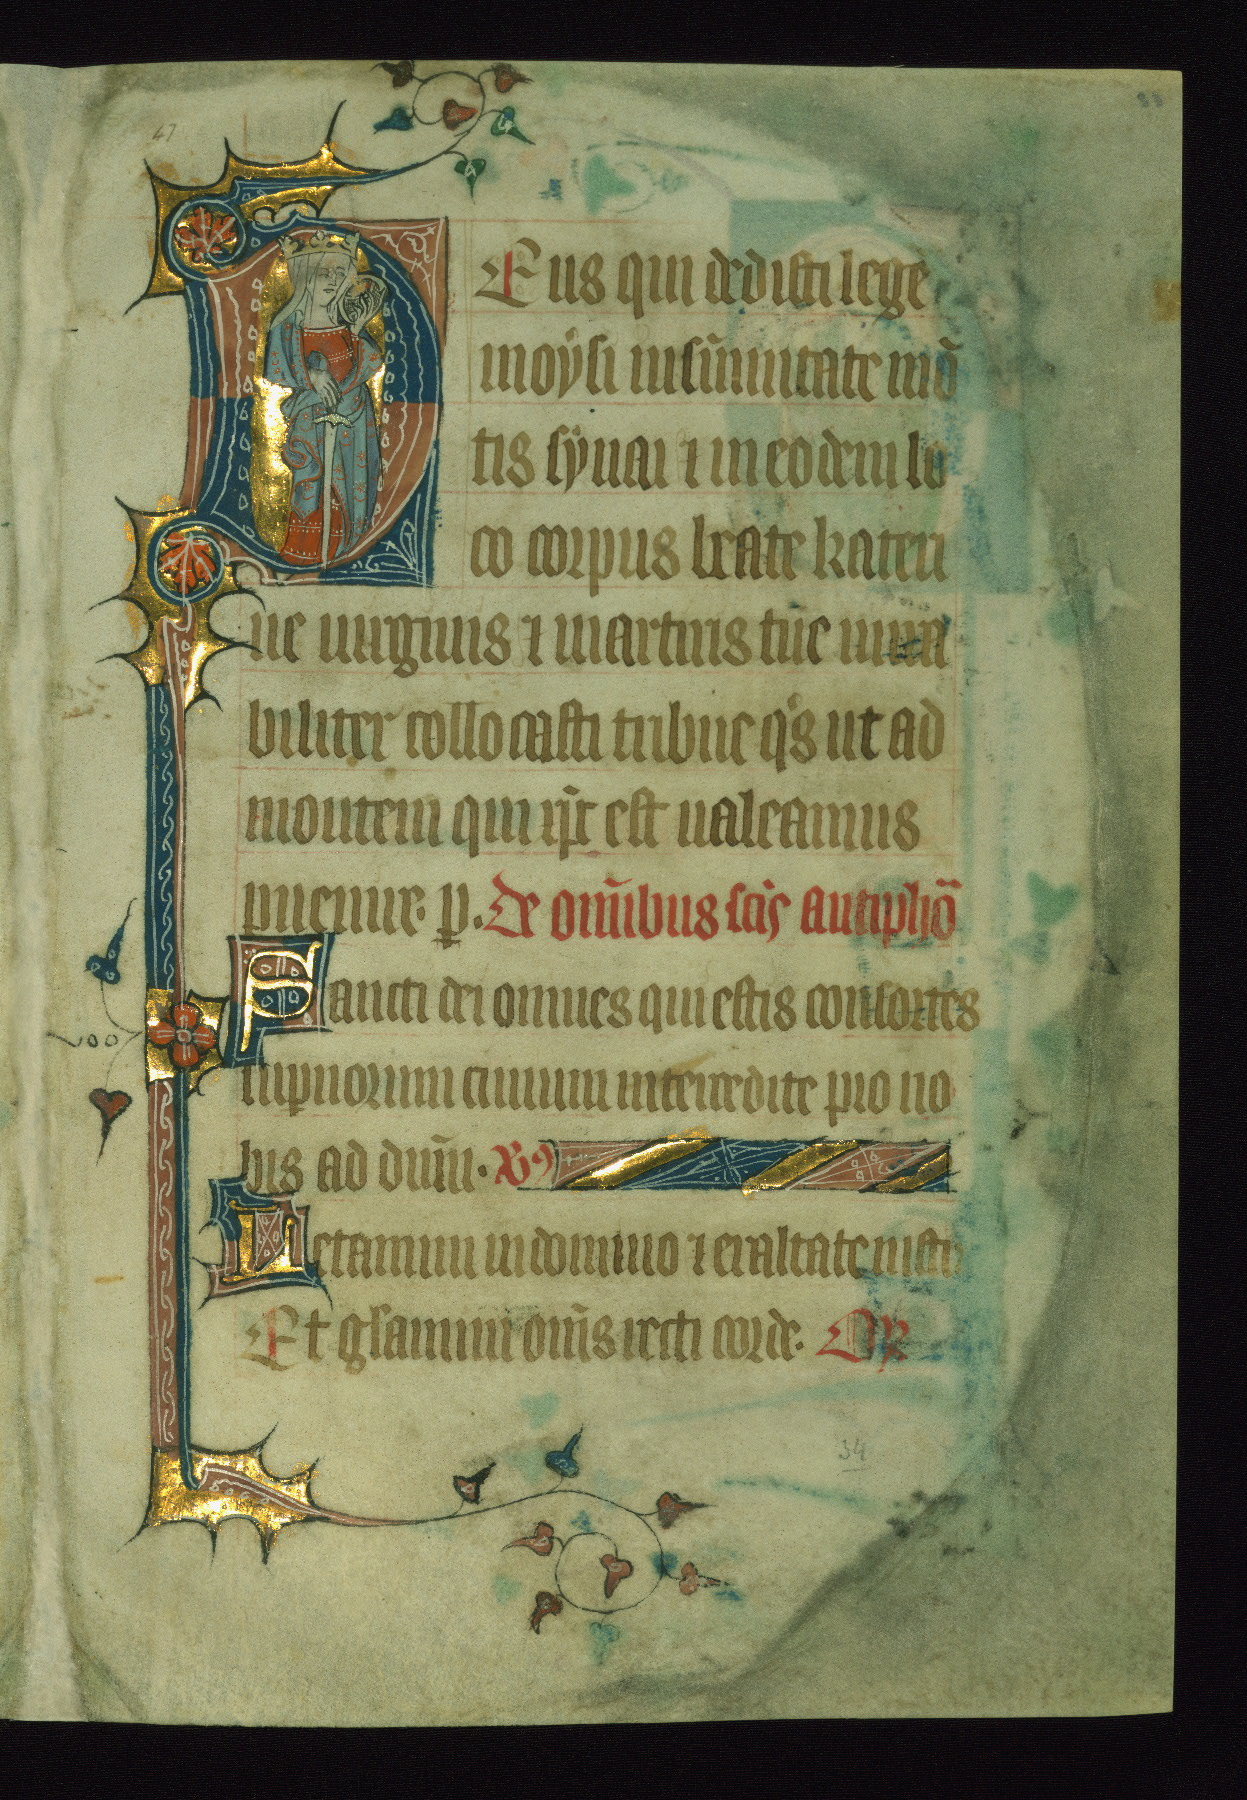 47
Deus qui dedisti lege
moÿsi in sūmitate mō
tis sẏnai ⁊ in eodem lo
co corpus beate kateri
ne uirginis ⁊ martiris tūe mira
biliter collocasti tribue qs ut ad
montem qui xp̄c est ualeamus
puenire. p. De om̄ibus scīs antiphō
Sancti dei omnes qui estis consortes
supnorum ciuium intercedite pro no
bis ad dnm̄.
Letamini in domino ⁊ exultate iusti
Et glamini om̄s recti corde. Or
34